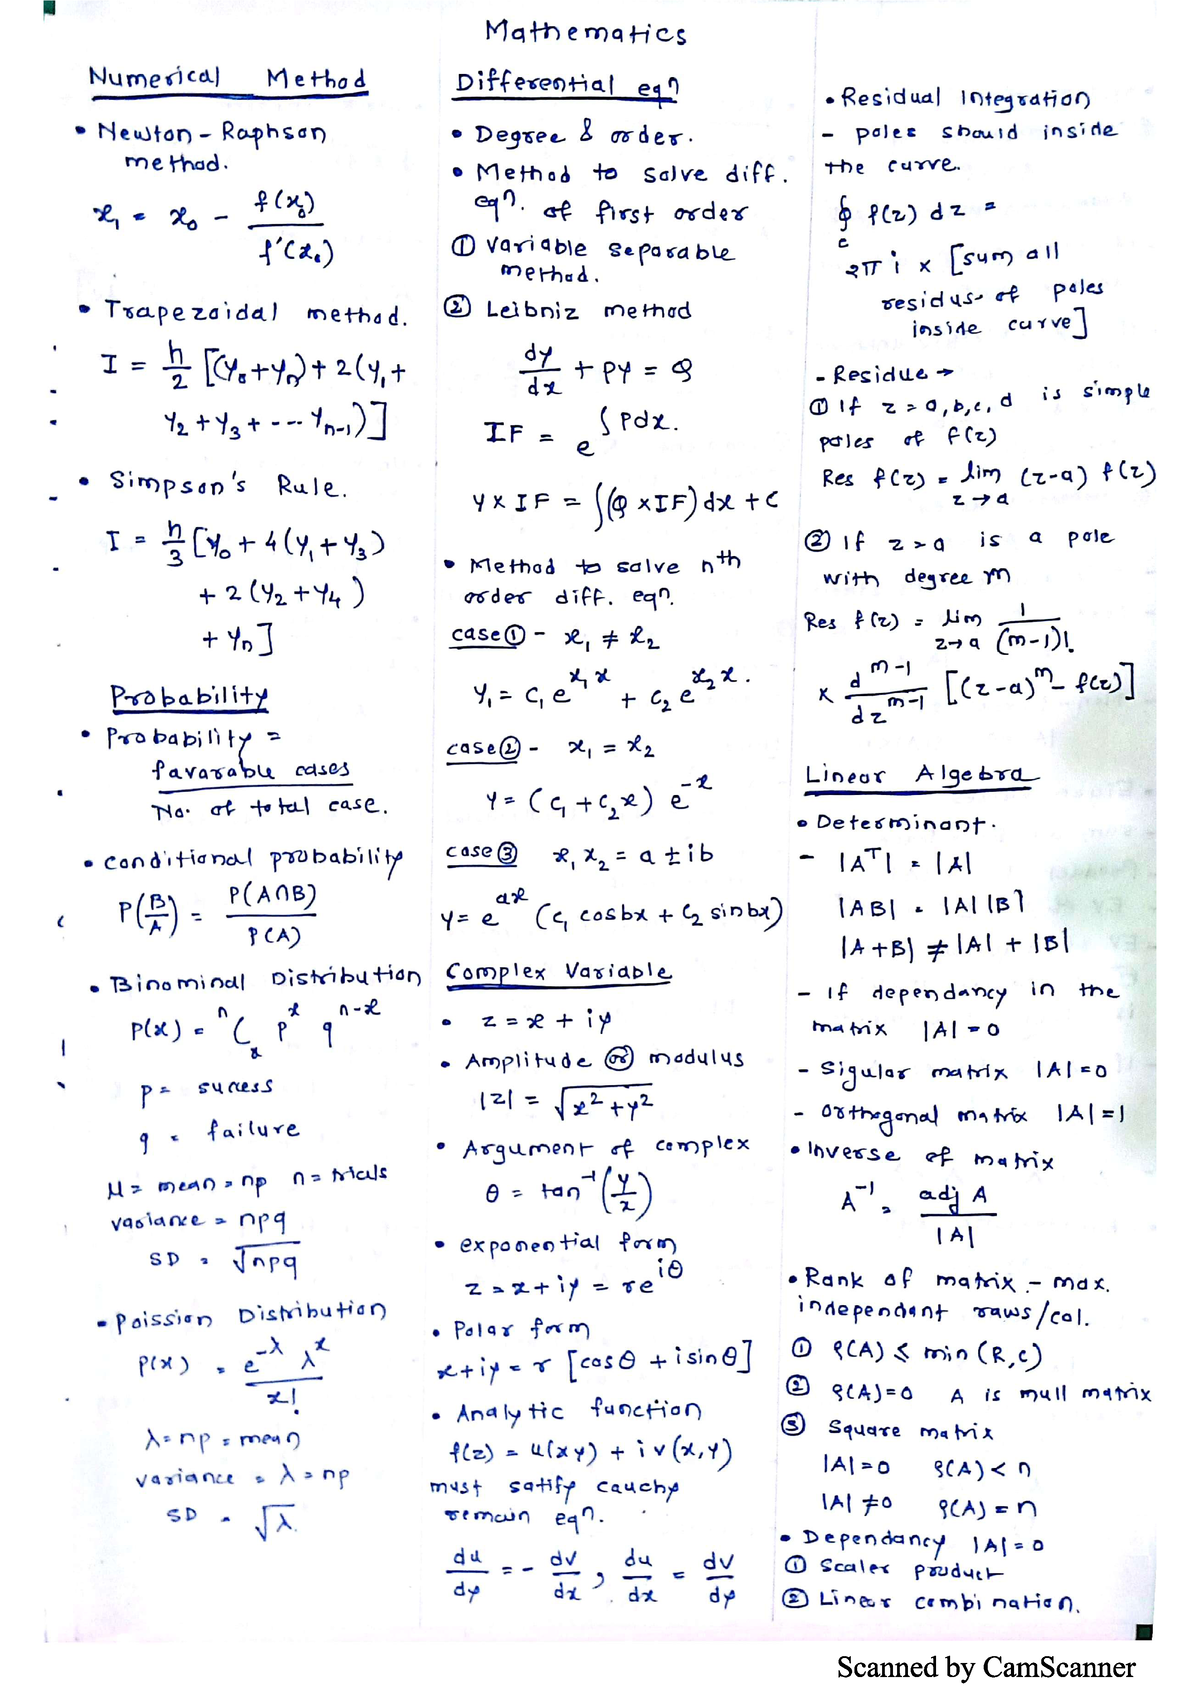 Mathematics
Numerical Method
• Newton - Raphson
method.
x₁ = x₀ - f(x₀) / f'(x₀)
• Trapezoidal method.
I = h/2 [(y₀+yₙ) + 2(y₁+
y₂ + y₃ + --- yₙ₋₁)]
• Simpson's Rule.
I = h/3 [y₀ + 4(y₁ + y₃)
+ 2(y₂ + y₄ )
+ yₙ]
Probability
• Probability =
favarable cases
No. of total case.
• conditional probability
P(B/A) = P(A∩B) / P(A)
• Binominal Distribution
P(x) = ⁿCₓ pˣ qⁿ⁻ˣ
p = sucess
q = failure
μ = mean = np n = trials
variance = npq
SD = √npq
• Poission Distribution
P(x) = e^-λ λˣ / x!
λ = np = mean
variance = λ = np
SD = √λ.
Differential eqn
• Degree & order.
• Method to solve diff.
eqn. of first order
① variable separable
method.
② Leibniz method
dy/dx + Py = Q
IF = e^∫Pdx.
y x IF = ∫(Q x IF) dx + C
• Method to solve nth
order diff. eqn.
case① - x₁ ≠ x₂
y₁ = C₁ e^x₁x + C₂ e^x₂x.
case② - x₁ = x₂
y = (C₁ + C₂x) e^-x
case③ x₁ x₂ = a ± ib
y = e^ax (C₁ cosbx + C₂ sinbx)
Complex Variable
• z = x + iy
• Amplitude or modulus
|z| = √x² + y²
• Argument of complex
θ = tan⁻¹(y/x)
• exponential form
z = x + iy = re^iθ
• Polar form
x + iy = r [cosθ + isinθ]
• Analytic function
f(z) = u(xy) + iv(x,y)
must satify cauchy
remain eqn.
du/dy = - dv/dx , du/dx = dv/dy
• Residual Integration
- poles should inside
the curve.
∮c f(z) dz =
2πi x [sum all
residus of poles
inside curve]
- Residue →
① If z = a,b,c,d is simple
poles of f(z)
Res f(z) = lim z→a (z-a) f(z)
② If z = a is a pole
with degree m
Res f(z) = lim z→a 1/(m-1)!
x d^m-1/dz^m-1 [(z-a)^m - f(z)]
Linear Algebra
• Determinant.
- |Aᵀ| = |A|
|AB| = |A| |B|
|A+B| ≠ |A| + |B|
- If dependancy in the
matrix |A| = 0
- Sigular matrix |A| = 0
- Orthogonal matrix |A| = 1
• Inverse of matrix
A⁻¹ = adj A / |A|
• Rank of matrix - max.
independant raws/col.
① ρ(A) ≤ min (R,C)
② ρ(A)=0 A is mull matrix
③ Square matrix
|A| = 0 ρ(A) < n
|A| ≠ 0 ρ(A) = n
• Dependancy |A| = 0
① Scaler product
② Linear combination.
Scanned by CamScanner